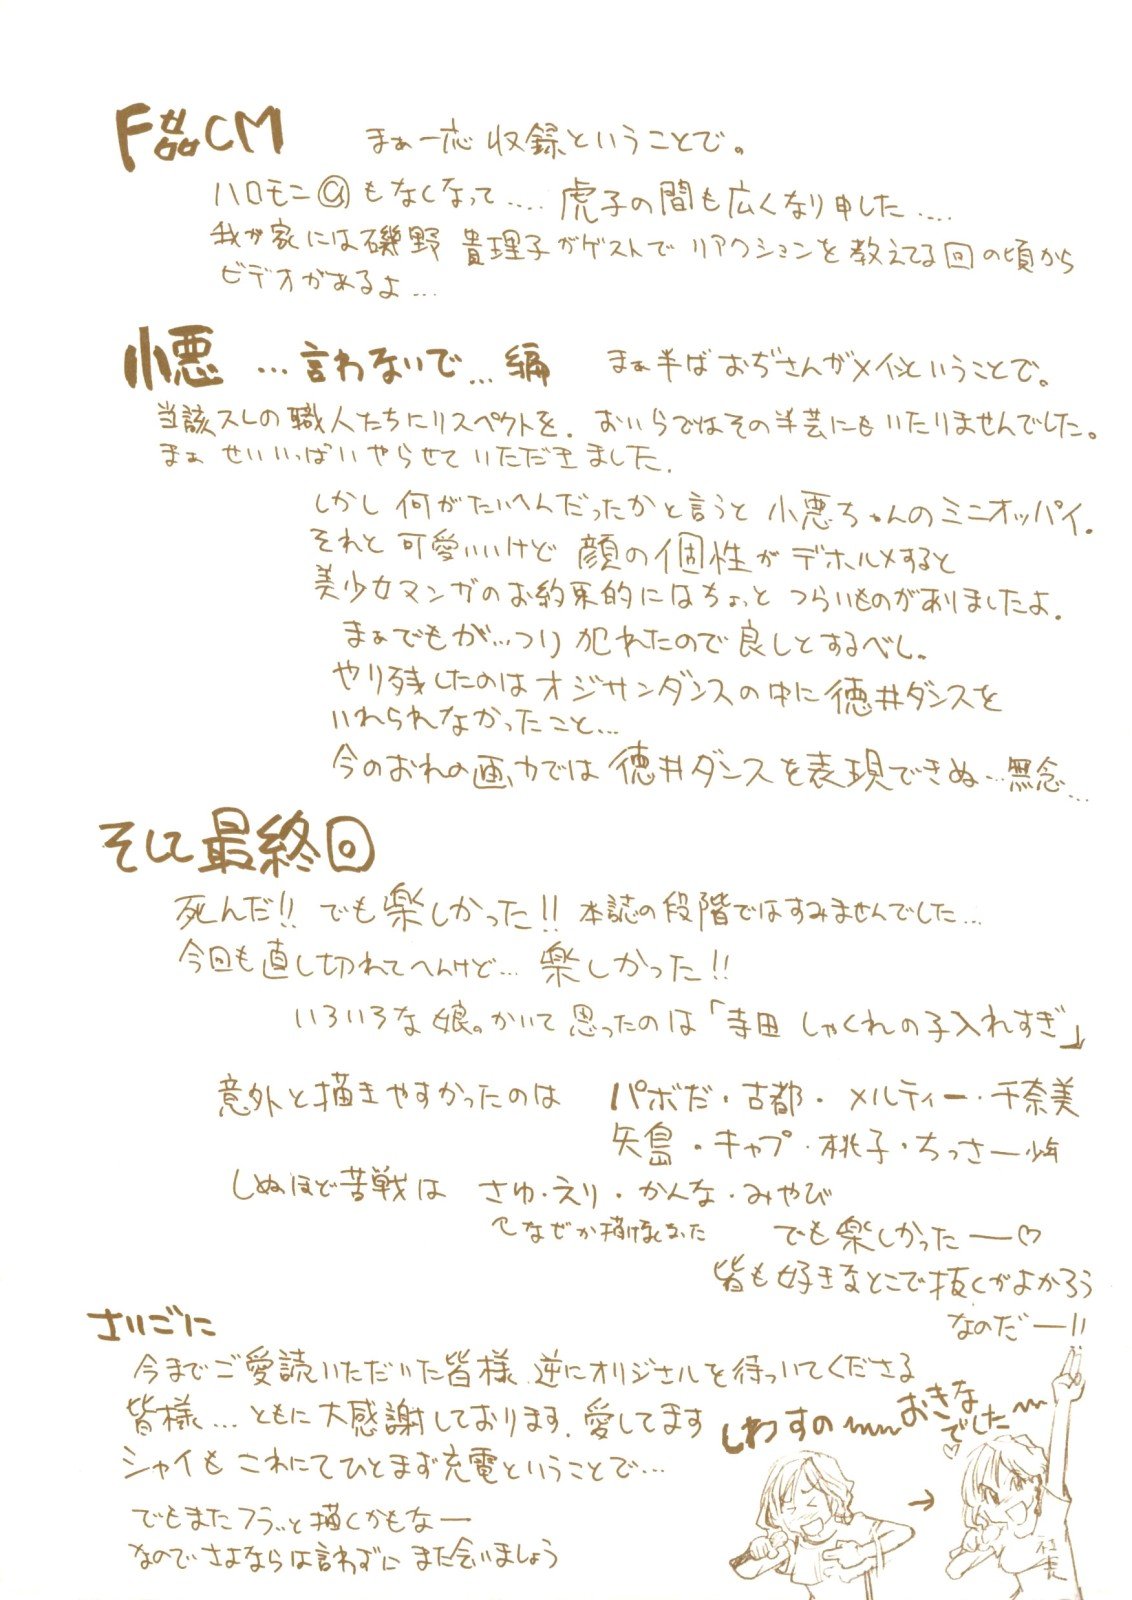 F CM
まぁ一応 収録ということで。
ハロモニ@もなくなって‥‥ 虎子の間も広くなり申した‥‥
我が家には磯野 貴理子がゲストで リアクションを教えてる回の頃から
ビデオがあるよ…
小悪 …言わないで…編
まぁ半ばおぢさんがメインということで。
当該スレの職人たちにリスペクトを. おいらではその半芸にもいたりませんでした。
まぁ せいいっぱいやらせていただきました.
しかし 何がたいへんだったかと言うと 小悪ちゃんのミニオッパイ.
それと 可愛いいけど 顔の個性が デホルメすると
美少女マンガのお約束的にはちょっと つらいものがありましたよ.
まぁでもが…つり 犯れたので良しとするべし。
やり残したのはオジサンダンスの中に徳井ダンスを
いれられなかったこと…
今のおれの画力では 徳井ダンスを表現できぬ…無念…
そして最終回
死んだ!! でも楽しかった!! 本誌の段階ではすみませんでした…
今回も直し切れてへんけど… 楽しかった!!
いろいろな娘。かいて思ったのは「寺田 しゃくれの子入れすぎ」
意外と描きやすかったのは パボだ・古都・メルティー・千奈美
矢島・キャプ・桃子・ちっさー少年
しぬほど苦戦は さゆ・えり・かんな・みやび
なぜか描けなかった
でも楽しかったー♡
皆も好きなとこで抜くがよかろう
なのだー!!
さいごに
今までご愛読いただいた皆様 逆にオリジナルを待っいてくださる
皆様…ともに大感謝しております. 愛してます
シャイも これにてひとまず充電ということで…
でもまたフラッと描くかもなー
なのでさよならは言わずに また会いましょう
しわすの〜〜おきな
でした〜